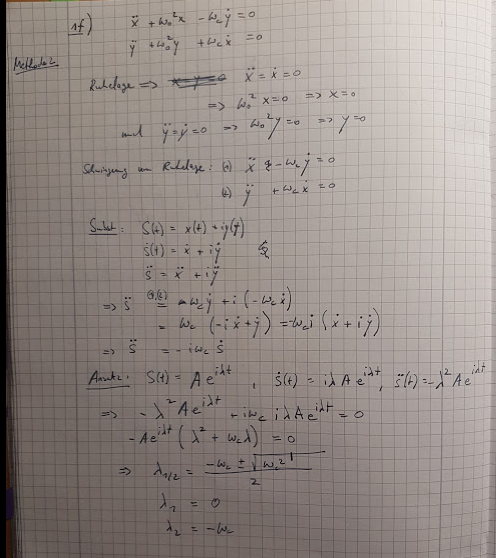 1f) ẍ + ω₀²x - ω_c ẏ = 0
ÿ + ω₀²y + ω_c ẋ = 0
Methode 2
Ruhelage => ẍ = ẋ = 0
=> ω₀² x = 0 => x = 0
und ÿ = ẏ = 0 => ω₀² y = 0 => y = 0
Schwingung um Ruhelage: (1) ẍ - ω_c ẏ = 0
(2) ÿ + ω_c ẋ = 0
Subst: S(t) = x(t) + iy(t)
ṡ(t) = ẋ + iẏ
s̈ = ẍ + iÿ
=> s̈ = ω_c ẏ + i (-ω_c ẋ)
= ω_c (-i ẋ + ẏ) = -ω_c i (ẋ + i ẏ)
=> s̈ = -i ω_c ṡ
Ansatz: S(t) = A e^{iλt}, ṡ(t) = iλ A e^{iλt}, s̈(t) = -λ² A e^{iλt}
=> -λ² A e^{iλt} + iω_c iλ A e^{iλt} = 0
-A e^{iλt} (λ² + ω_c λ) = 0
=> λ_{1/2} = (-ω_c ± √(ω_c²)) / 2
λ₁ = 0
λ₂ = -ω_c